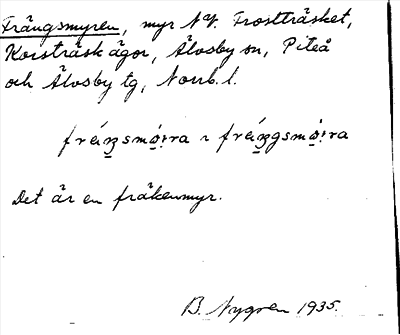 Frängsmyren, myr NV. Frostträsket,
Korsträsk ägor, Älvsby sn, Piteå
och Älvsby tg, Norrb. l.
fráŋsmọ:ra ~ fráŋgsmọ:ra
Det är en fräkenmyr.
B. Nygren 1935.